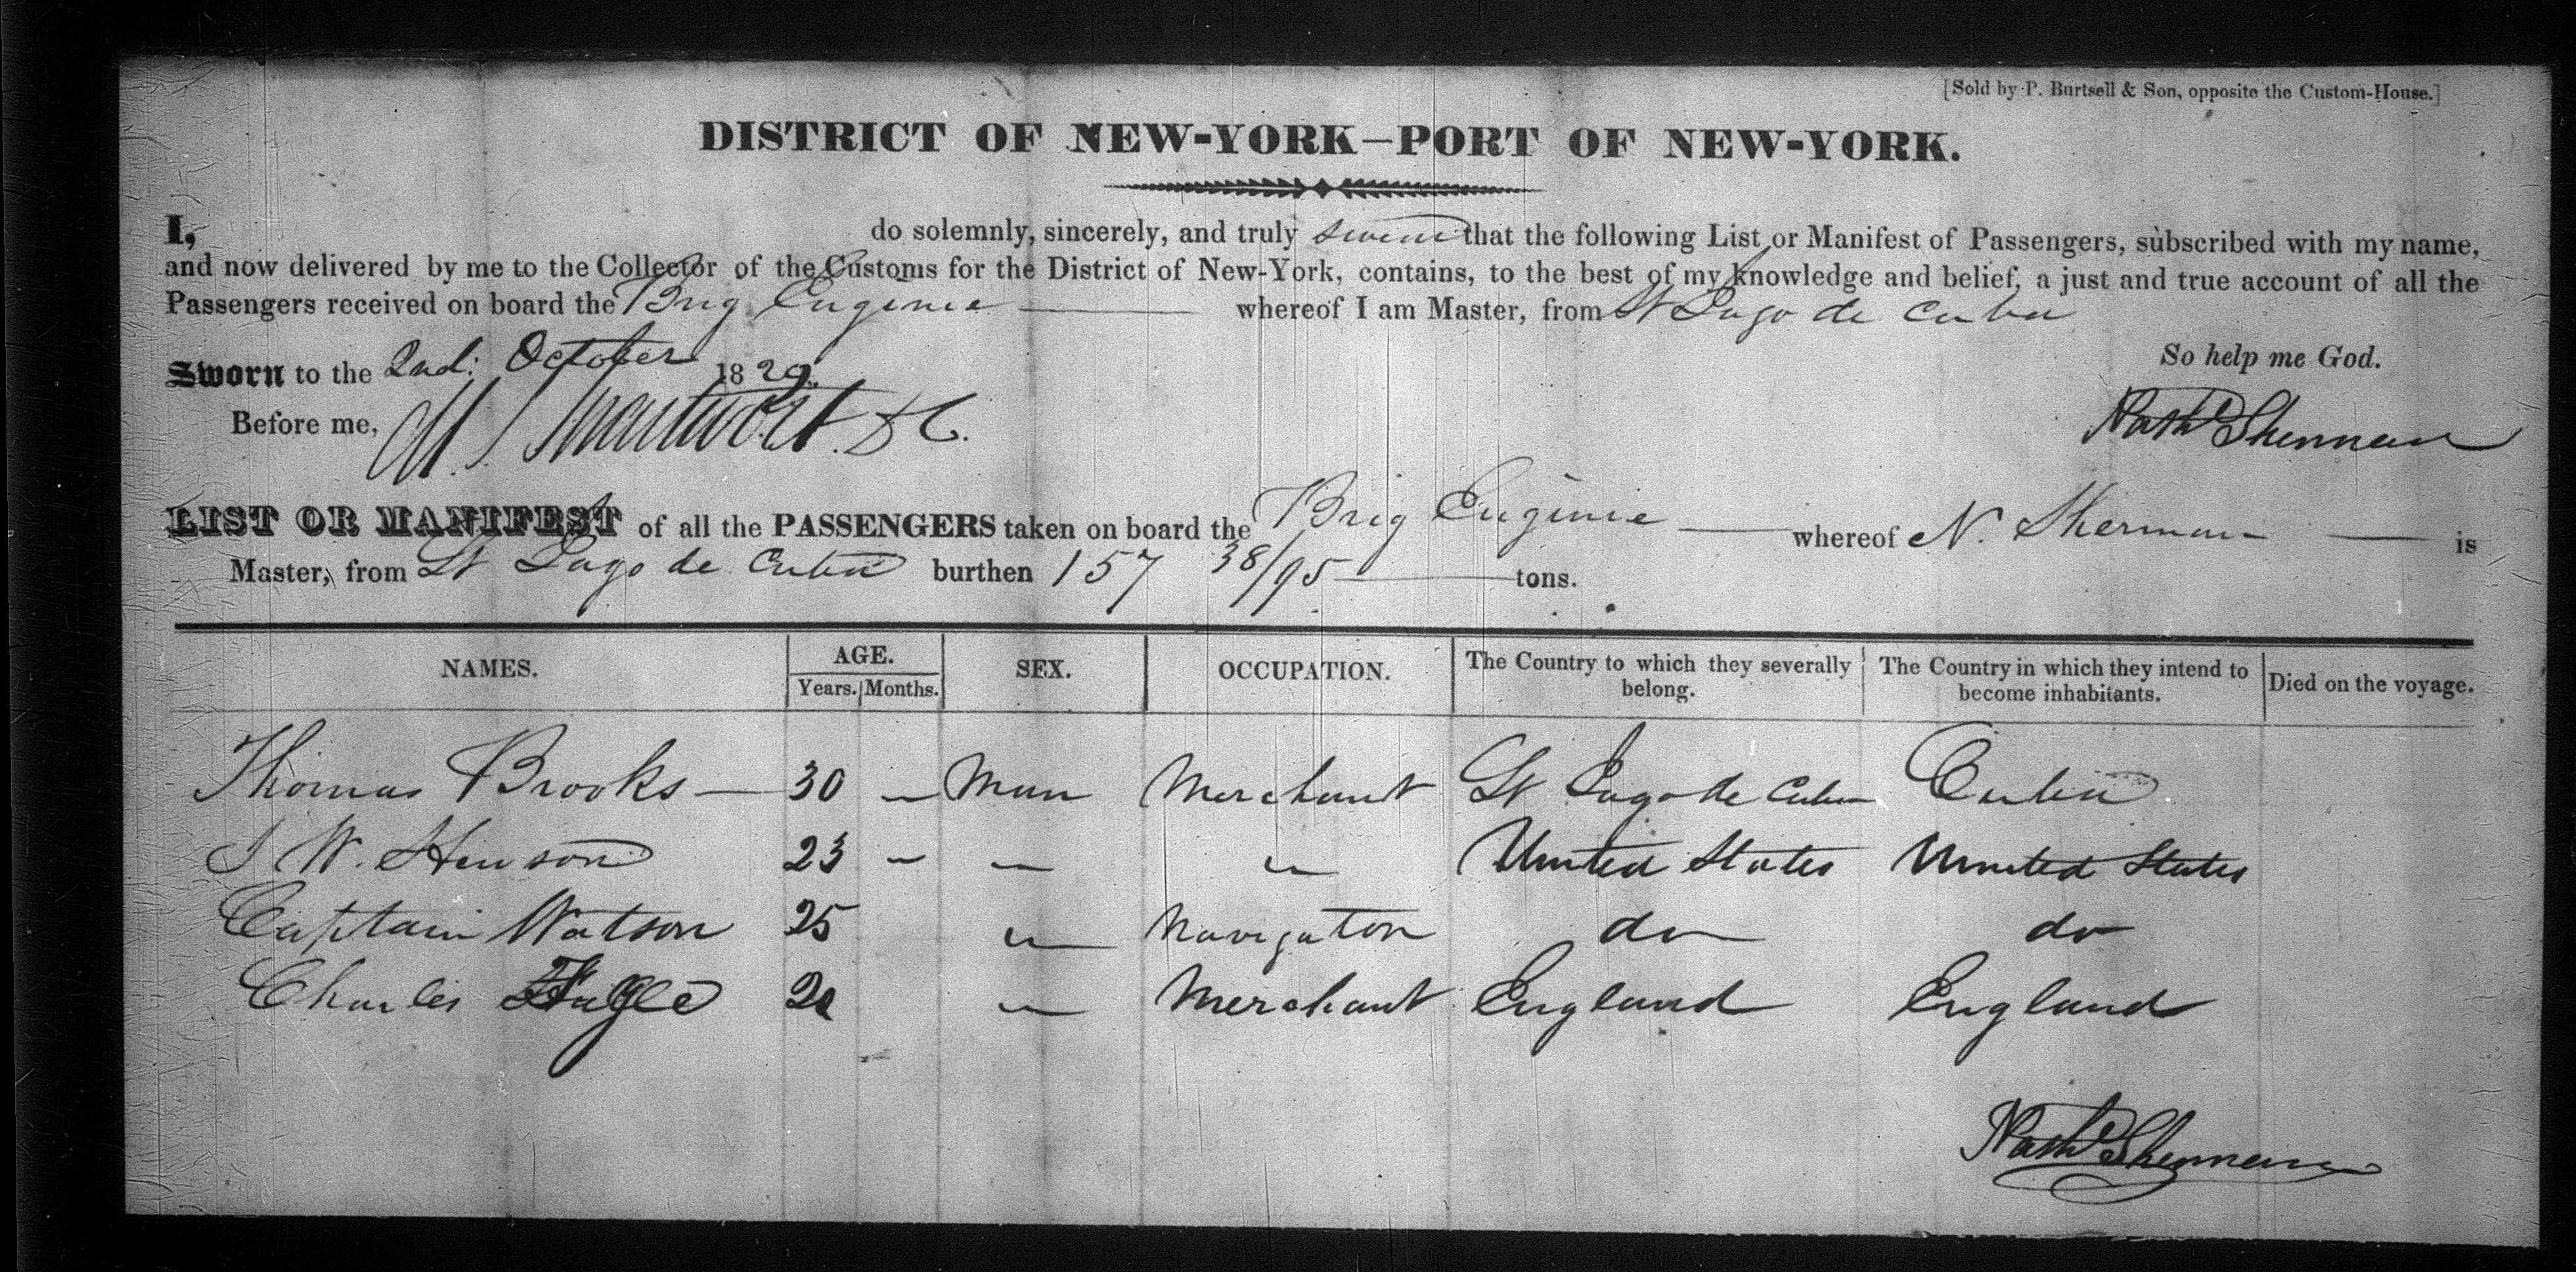 [Sold by P. Burtsell & Son, opposite the Custom-House.]
DISTRICT OF NEW-YORK—PORT OF NEW-YORK.
I, do solemnly, sincerely, and truly swear that the following List or Manifest of Passengers, subscribed with my name,
and now delivered by me to the Collector of the Customs for the District of New-York, contains, to the best of my knowledge and belief, a just and true account of all the
Passengers received on board the Brig Eugenie whereof I am Master, from St Iago de Cuba
Sworn to the 2nd October 1829.
So help me God.
Before me,
Nathl Sherman
LIST OR MANIFEST of all the PASSENGERS taken on board the Brig Eugenie whereof N. Sherman is
Master, from St Iago de Cuba burthen 157 38/95 tons.
NAMES. AGE. Years. Months. SEX. OCCUPATION. The Country to which they severally belong. The Country in which they intend to become inhabitants. Died on the voyage.
Thomas Brooks — 30 — Man Merchant St Iago de Cuba Cuba
W. Hewson 23 — " " United States United States
Captain Watson 25 " Navigator do do
Charles " Merchant England England
Nathl Sherman